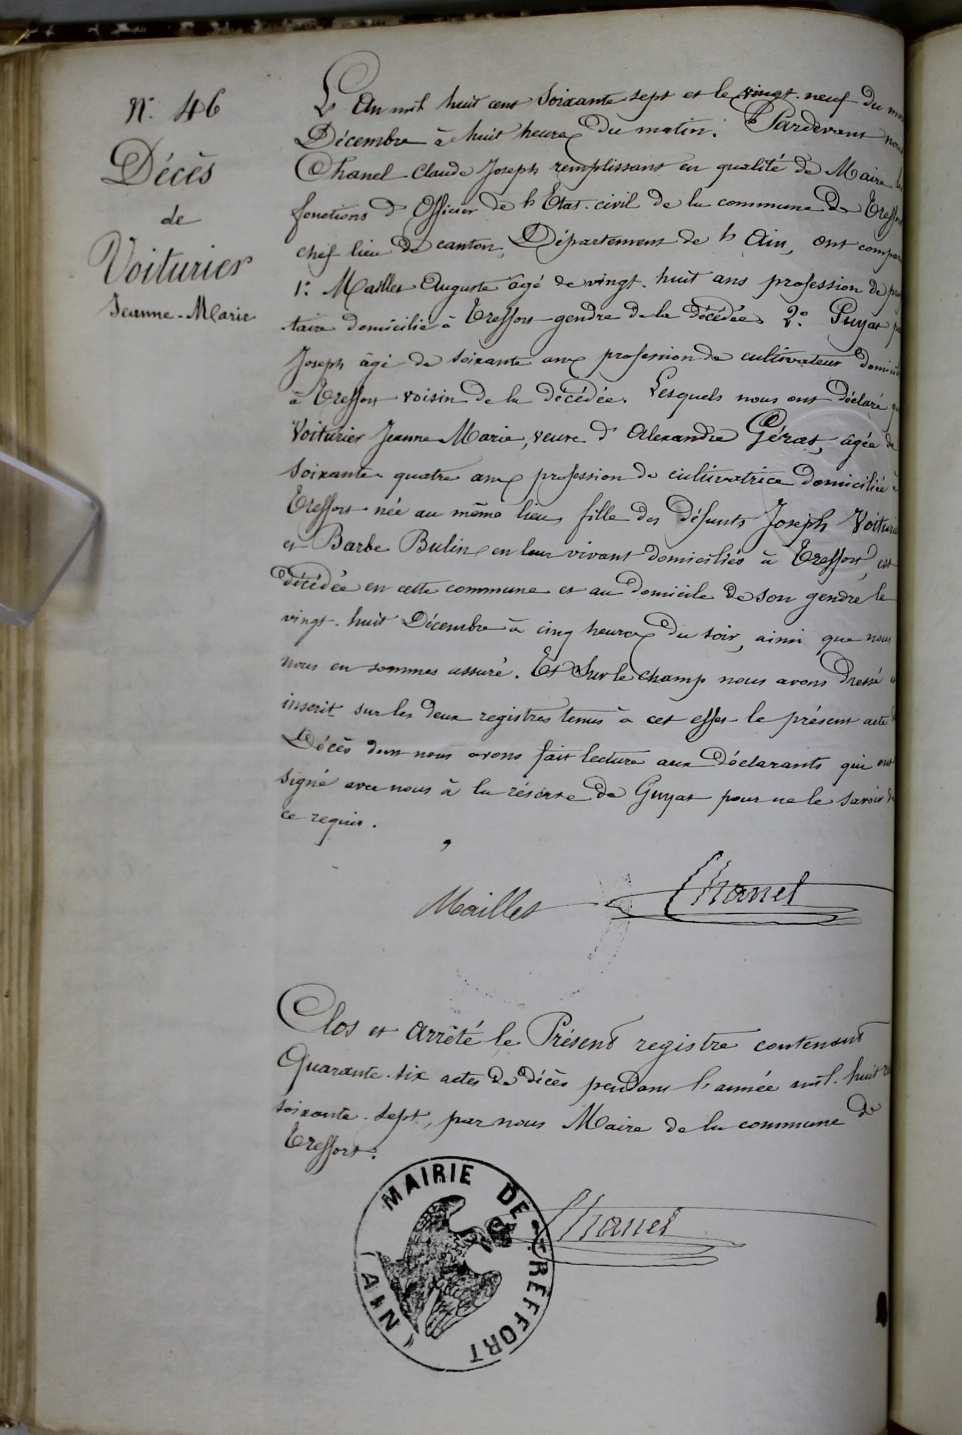 N° 46
Décès
de
Voiturier
Jeanne-Marie
L'An mil huit cent soixante sept et le vingt-neuf du
Décembre à huit heures du matin. Pardevant nous
Chanel Claude Joseph remplissant en qualité de Maire les
fonctions d'Officier de l'Etat-civil de la commune de Treffort
chef lieu de canton, Département de l'Ain, ont compar
1° Maillet Auguste âgé de vingt-huit ans profession de
-taire domicilié à Treffort gendre de la décédée, 2°
Joseph âgé de soixante ans profession de cultivateur domicil
à Treffort voisin de la décédée. Lesquels nous ont déclaré
Voiturier Jeanne Marie, veuve d'Alexandre Géras, âgée de
soixante quatre ans profession de cultivatrice domiciliée à
Treffort née au même lieu, fille des défunts Joseph Voiturier
et Barbe Bulin en leur vivant domiciliés à Treffort, est
décédée en cette commune et au domicile de son gendre le
vingt-huit Décembre à cinq heures du soir, ainsi que nous
nous en sommes assuré. Et Sur le champ nous avons Dressé
inscrit sur les deux registres tenus à cet effet le présent acte
Décès dont nous avons fait lecture aux déclarants qui ont
signé avec nous à la réserve de Guyat pour ne le savoir de
ce requis.
Maillet Chanel
Clos et Arrêté le Présent registre contenant
Quarante-six actes de décès pendant l'année mil-huit
soixante-sept, par nous Maire de la commune de
Treffort.
Chanel
MAIRIE DE TREFFORT
(AIN)